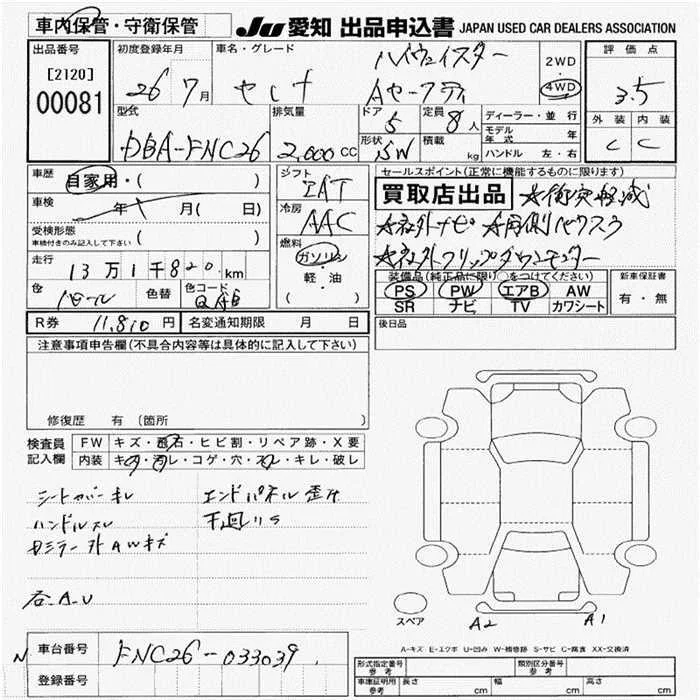 車内保管・守衛保管 JU 愛知 出品申込書 JAPAN USED CAR DEALERS ASSOCIATION
出品番号 [2120] 00081
初度登録年月 26 7月
車名・グレード セレナ ハイウェイスター Aセーフティ
2WD 4WD
評価点 3.5
外装 C 内装 C
型式 DBA-FNC26
排気量 2,000cc
ドア 5
定員 8人
形状 SW
積載 kg
ディーラー・並行
モデル年式
ハンドル 左・右
車歴 自家用・( )
車検 年 月( 日)
受検形態 車検付きのみ記入して下さい ( )
走行 13万1千820km
色 パール 色替 色コード QAB
シフト IAT
冷房 AAC
燃料 ガソリン・軽・油 ( )
セールスポイント(正常に機能するものに限ります)
買取店出品 ☆衝突軽減
☆社外ナビ ☆両側パワスラ
☆社外フリップダウンモニター
装備品(純正品に限り○をつけてください)
PS PW エアB AW
SR ナビ TV カワシート
新車保証書 有・無
R券 11,810円 名変通知期限 月 日
後日品
注意事項申告欄(不具合内容等は具体的に記入して下さい)
修復歴 有 (箇所 )
検査員記入欄
FW キズ・飛石・ヒビ割・リペア跡・X要
内装 キズ・汚レ・コゲ・穴・スレ・キレ・破レ
シートカバーキレ エンドパネル歪ミ
ハンドルスレ 下廻りS
Dミラー外AWキズ
各A.U
スペア A2 A1
A-キズ E-エクボ U-凹み W-補修跡 S-サビ C-腐食 XX-交換済
N 車台番号 FNC26-033039
登録番号
形式指定番号 参考 類別区分番号 参考
車庫証明用 参考 長さ cm 幅 cm 高さ cm